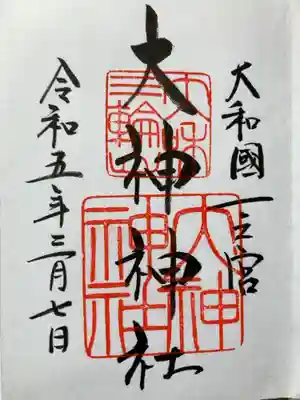 大和國一之宮
大神神社
令和五年三月七日
大神神社